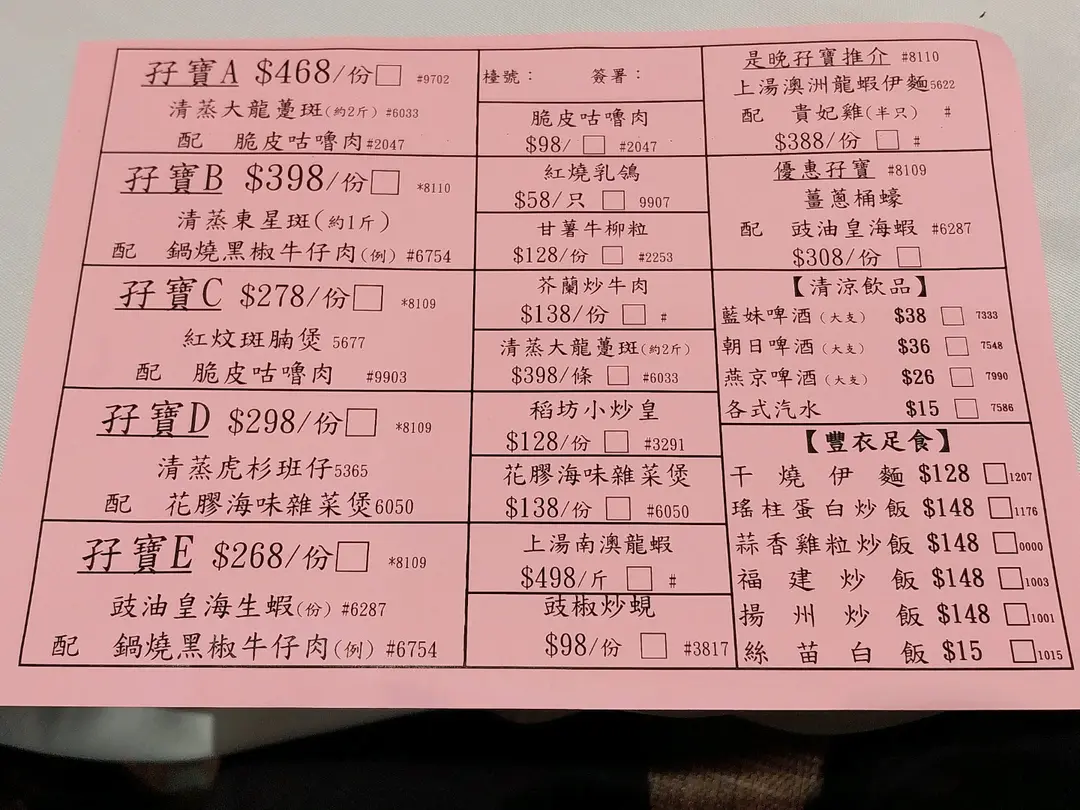 孖寶A $468/份□ #9702
清蒸大龍躉斑(約2斤) #6033
配 脆皮咕嚕肉#2047
孖寶B $398/份□ *8110
清蒸東星斑(約1斤)
配 鍋燒黑椒牛仔肉(例) #6754
孖寶C $278/份□ *8109
紅炆斑腩煲 5677
配 脆皮咕嚕肉 #9903
孖寶D $298/份□ *8109
清蒸虎杉班仔5365
配 花膠海味雜菜煲6050
孖寶E $268/份□ *8109
豉油皇海生蝦(份) #6287
配 鍋燒黑椒牛仔肉(例) #6754
檯號： 簽署：
脆皮咕嚕肉
$98/ □ #2047
紅燒乳鴿
$58/只 □ 9907
甘薯牛柳粒
$128/份 □ #2253
芥蘭炒牛肉
$138/份 □ #
清蒸大龍躉斑(約2斤)
$398/條 □ #6033
稻坊小炒皇
$128/份 □ #3291
花膠海味雜菜煲
$138/份 □ #6050
上湯南澳龍蝦
$498/斤 □ #
豉椒炒蜆
$98/份 □ #3817
是晚孖寶推介 #8110
上湯澳洲龍蝦伊麵5622
配 貴妃雞(半只) #
$388/份 □ #
優惠孖寶 #8109
薑蔥桶蠔
配 豉油皇海蝦 #6287
$308/份 □
【清涼飲品】
藍妹啤酒(大支) $38 □ 7333
朝日啤酒(大支) $36 □ 7548
燕京啤酒(大支) $26 □ 7990
各式汽水 $15 □ 7586
【豐衣足食】
干燒伊麵 $128 □1207
瑤柱蛋白炒飯 $148 □1176
蒜香雞粒炒飯 $148 □0000
福建炒飯 $148 □1003
揚州炒飯 $148 □1001
絲苗白飯 $15 □1015